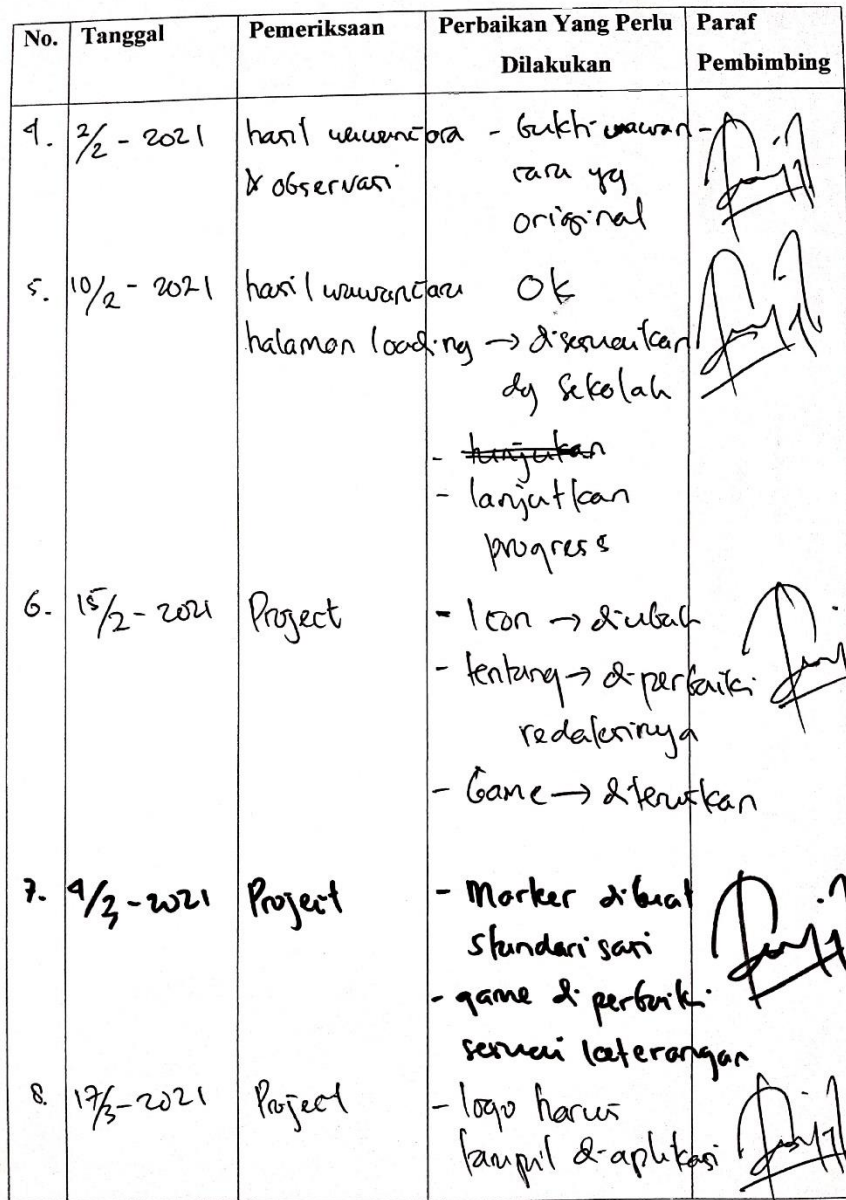 No. Tanggal Pemeriksaan Perbaikan Yang Perlu Dilakukan Paraf Pembimbing
4. 2/2 - 2021 hasil wawancara - bukti wawan-
& observasi cara yg
original
5. 10/2 - 2021 hasil wawancara Ok
halaman loading → disesuaikan
dg sekolah
- lanjutkan
progress
6. 15/2 - 2021 Project - Icon → diubah
- tentang → diperbaiki
redaksinya
- Game → diteruskan
7. 4/3 - 2021 Project - Marker dibuat
standarisasi
- game diperbaiki
sesuai keterangan
8. 17/3 - 2021 Project - logo harus
tampil di aplikasi